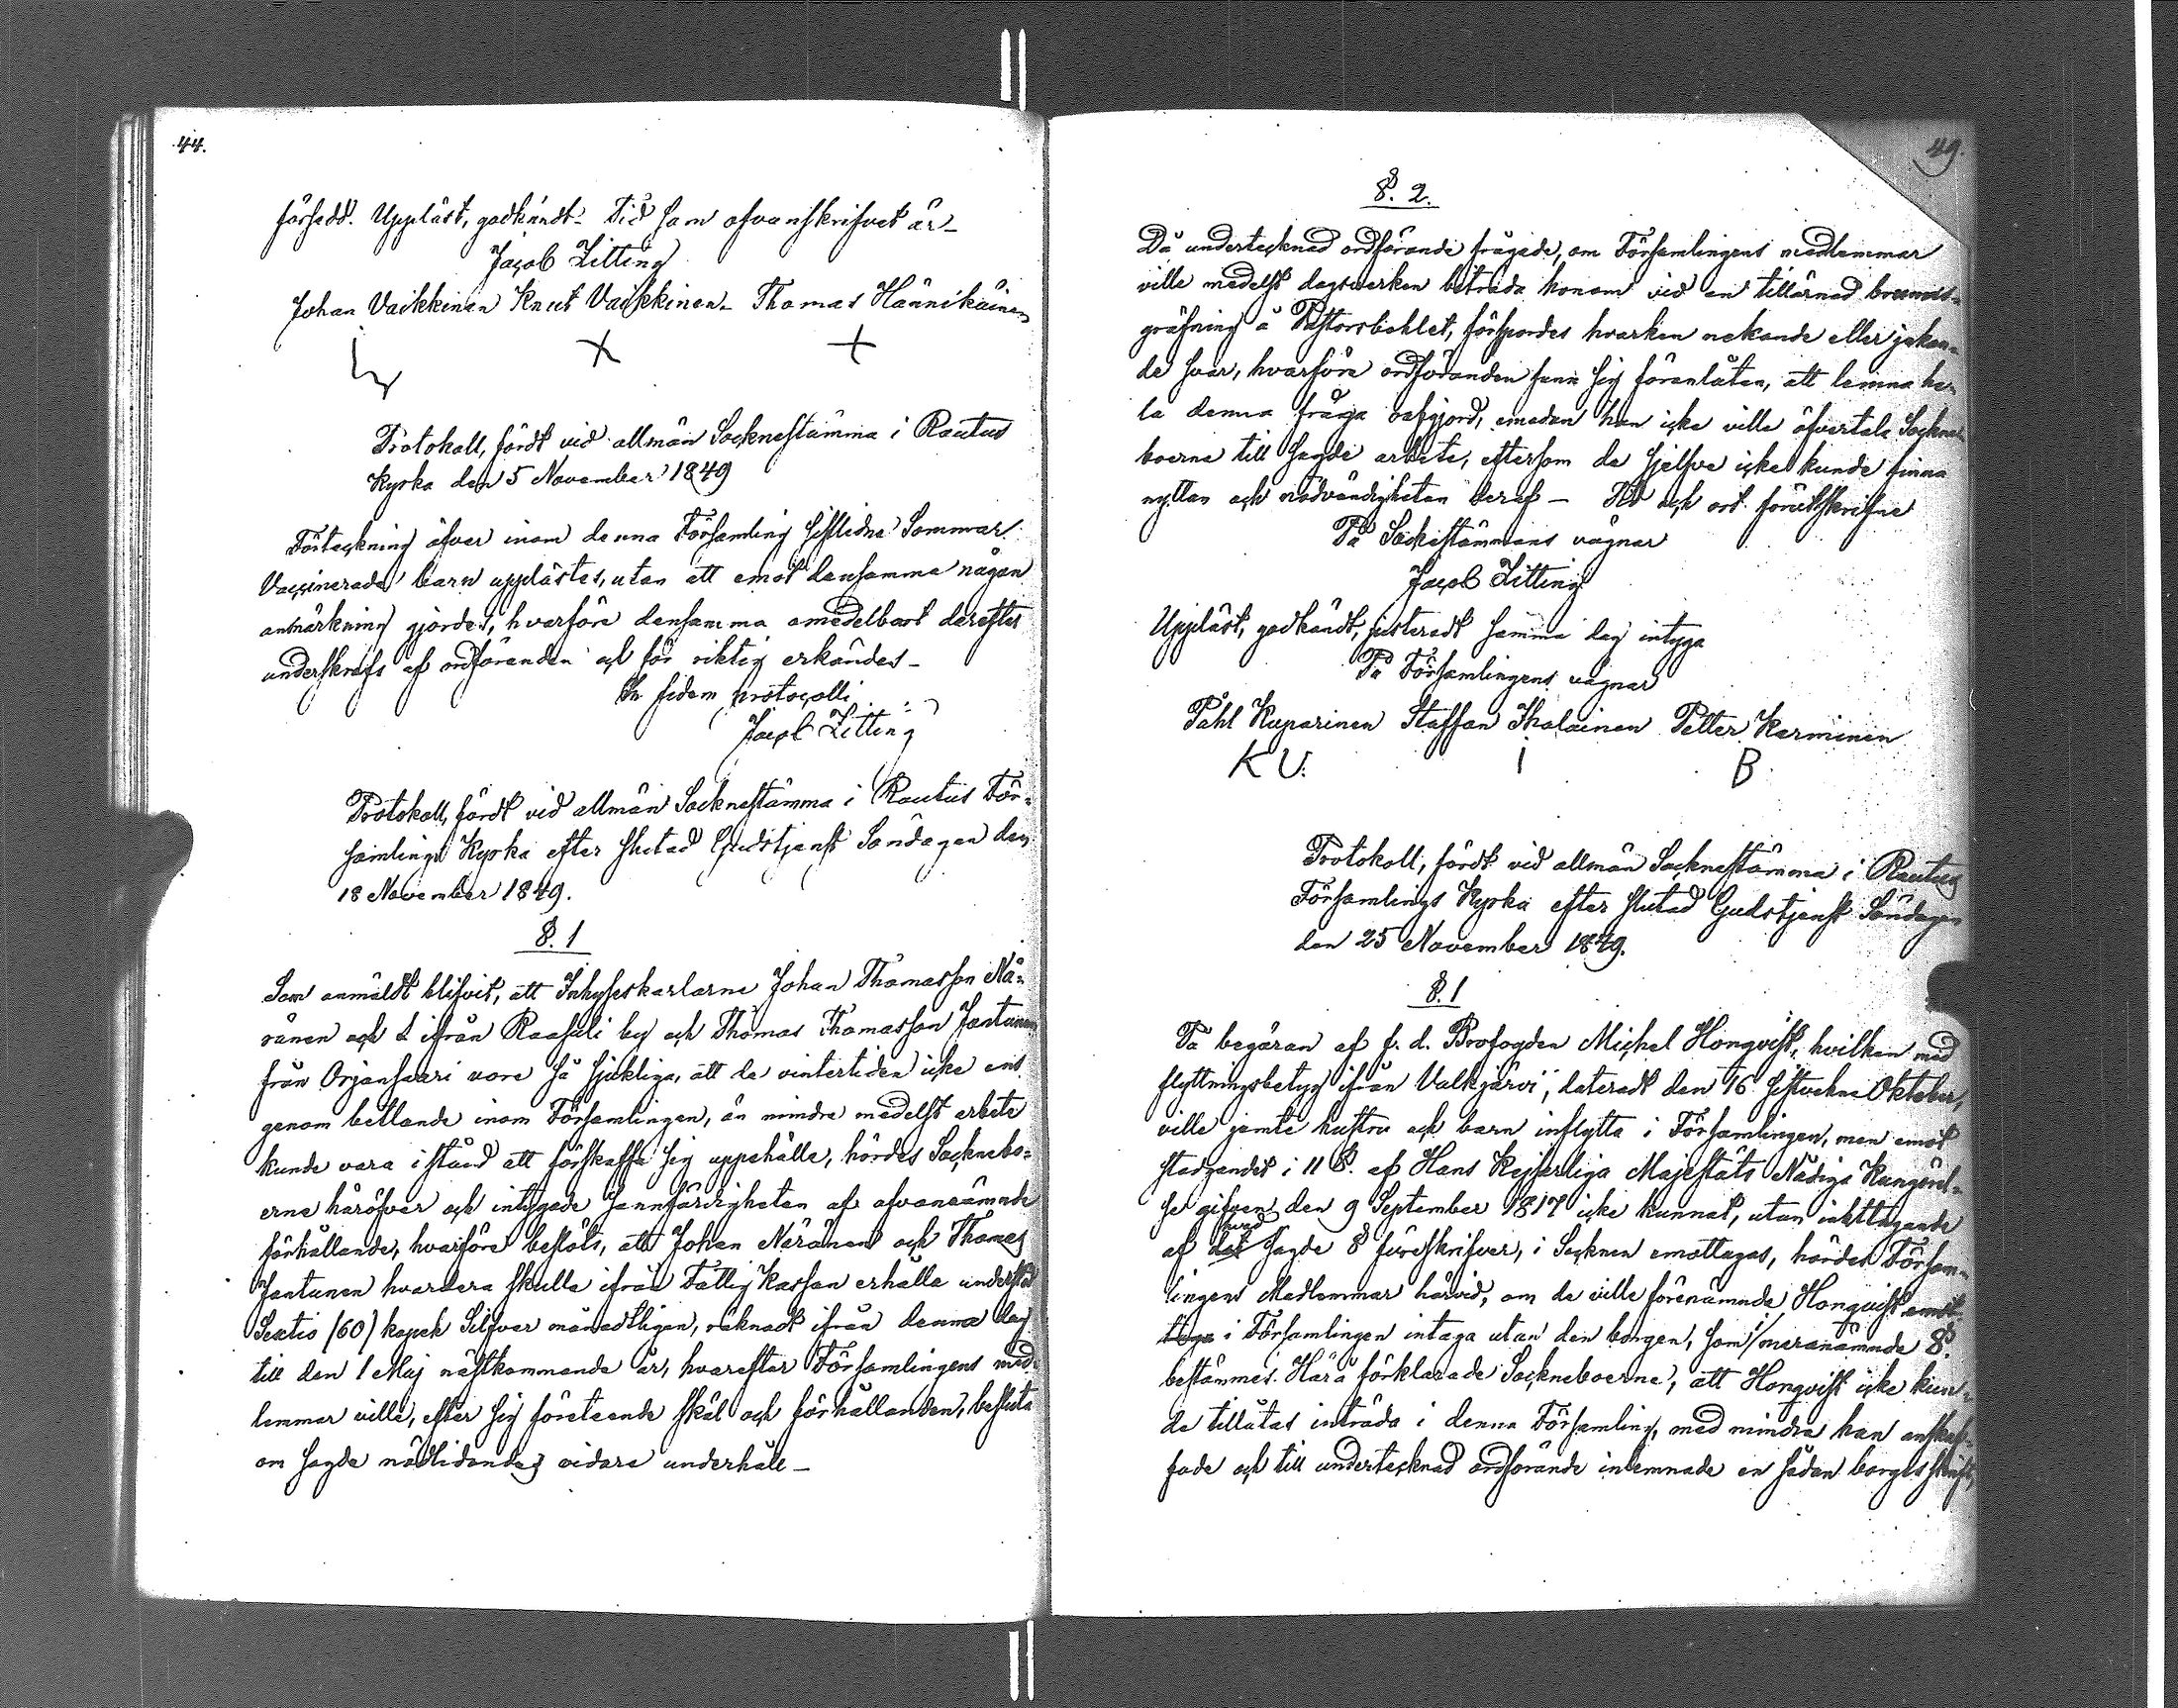 44.
försedd. Uppläst, godkändt. Tid som ofvanskrifvet är_
Jacob Zitting
Johan Vaikkinen Knut Vaikkinen_ Thomas Hännikäinen
Protokoll, fördt vid allmän Socknestämma i Rautus
Kyrka den 5 November 1849
Förteckning öfver inom denna Församling sistledne Sommar
Vaccinerade barn upplästes, utan att emot densamma någon
anmärkning gjordes, hvarföre densamma omedelbart derefter
underskrefs af ordföranden och för riktig erkändes_
In fidem protocolli
Jacob Zitting
Protokoll, fördt vid allmän Socknestämma i Rautus För-
samlings Kyrka efter slutad Gudstjenst Söndagen den
18 November 1849.
§. 1
Som anmäldt blifvit, att Inhyseskarlarne Johan Thomasson Nä-
ränen och ifrån Raasuli by och Thomas Thomasson Jantunen
från Orjansaari vore så sjukliga, att de vintertiden icke ens
genom betlande inom Församlingen, än mindre medelst arbete
kunde vara i stånd att förskaffa sig uppehälle, hördes Socknebo-
erne häröfver och intygade sannfärdigheten af ofvannämnde
förhållande, hvarföre beslöts, att Johan Näränen och Thomas
Jantunen hvardera skulle ifrån Fattig Kassan erhålla understöd
Sextio (60) kopek Silfver månadtligen, räknadt ifrån denna dag
till den 1 Maj nästkommande år, hvarefter Församlingens med-
lemmar ville, efter sig företeende skäl och förhållanden, besluta
om sagde nödlidandes vidare underhåll_
49.
§. 2.
Då undertecknad ordförande frågade, om Församlingens medlemmar
ville medelst dagsverken biträda honom vid en tillärnad brunns-
gräfning å Pastorsbohlet, förspordes hvarken nekande eller jakan-
de svar, hvarföre ordföranden fann sig föranlåten, att lemna he-
la denna fråga oafgjord, emedan han icke ville öfvertala Sockne-
boerne till sagde arbete, eftersom de sjelfve icke kunde finna
nyttan och nödvändigheten deraf_ Tid och ort förutskrifne
På Sockestämmans vägnar
Jacob Zitting
Uppläst, godkändt, justeradt samma dag intyga
På Församlingens vägnar
Påhl Kuparinen Staffan Ihalainen Petter Karminen
K U. I B
Protokoll, fördt vid allmän Socknestämma i Rautus
Församlings Kyrka efter slutad Gudstjenst Söndagen
den 25 November 1849.
§. 1
På begäran af f. d. Brofogden Michel Honqvist, hvilken med
flyttningsbetyg ifrån Valkjärvi, dateradt den 16 sistvekne Oktober,
ville jemte hustru och barn inflytta i Församlingen, men emot
stadgandet i 11 §. af Hans Kejserliga Majestäts Nådiga Kungörel-
se gifven den 9 September 1817 icke kunnat, utan iakttagande
af det hvad sagde § föreskrifver, i Socknen emottagas, hördes Försam-
lingens Medlemmar härvid, om de ville förenämnde Honqvist emot-
taga i Församlingen intaga utan den borgen, som i meranämnde §.
bestämmes. Härå förklarade Sockneboerne, att Honqvist icke kun-
de tillåtas inträda i denna Församling, med mindre han anskaf-
fade och till undertecknad ordförande inlemnade en sådan borgesskrift,